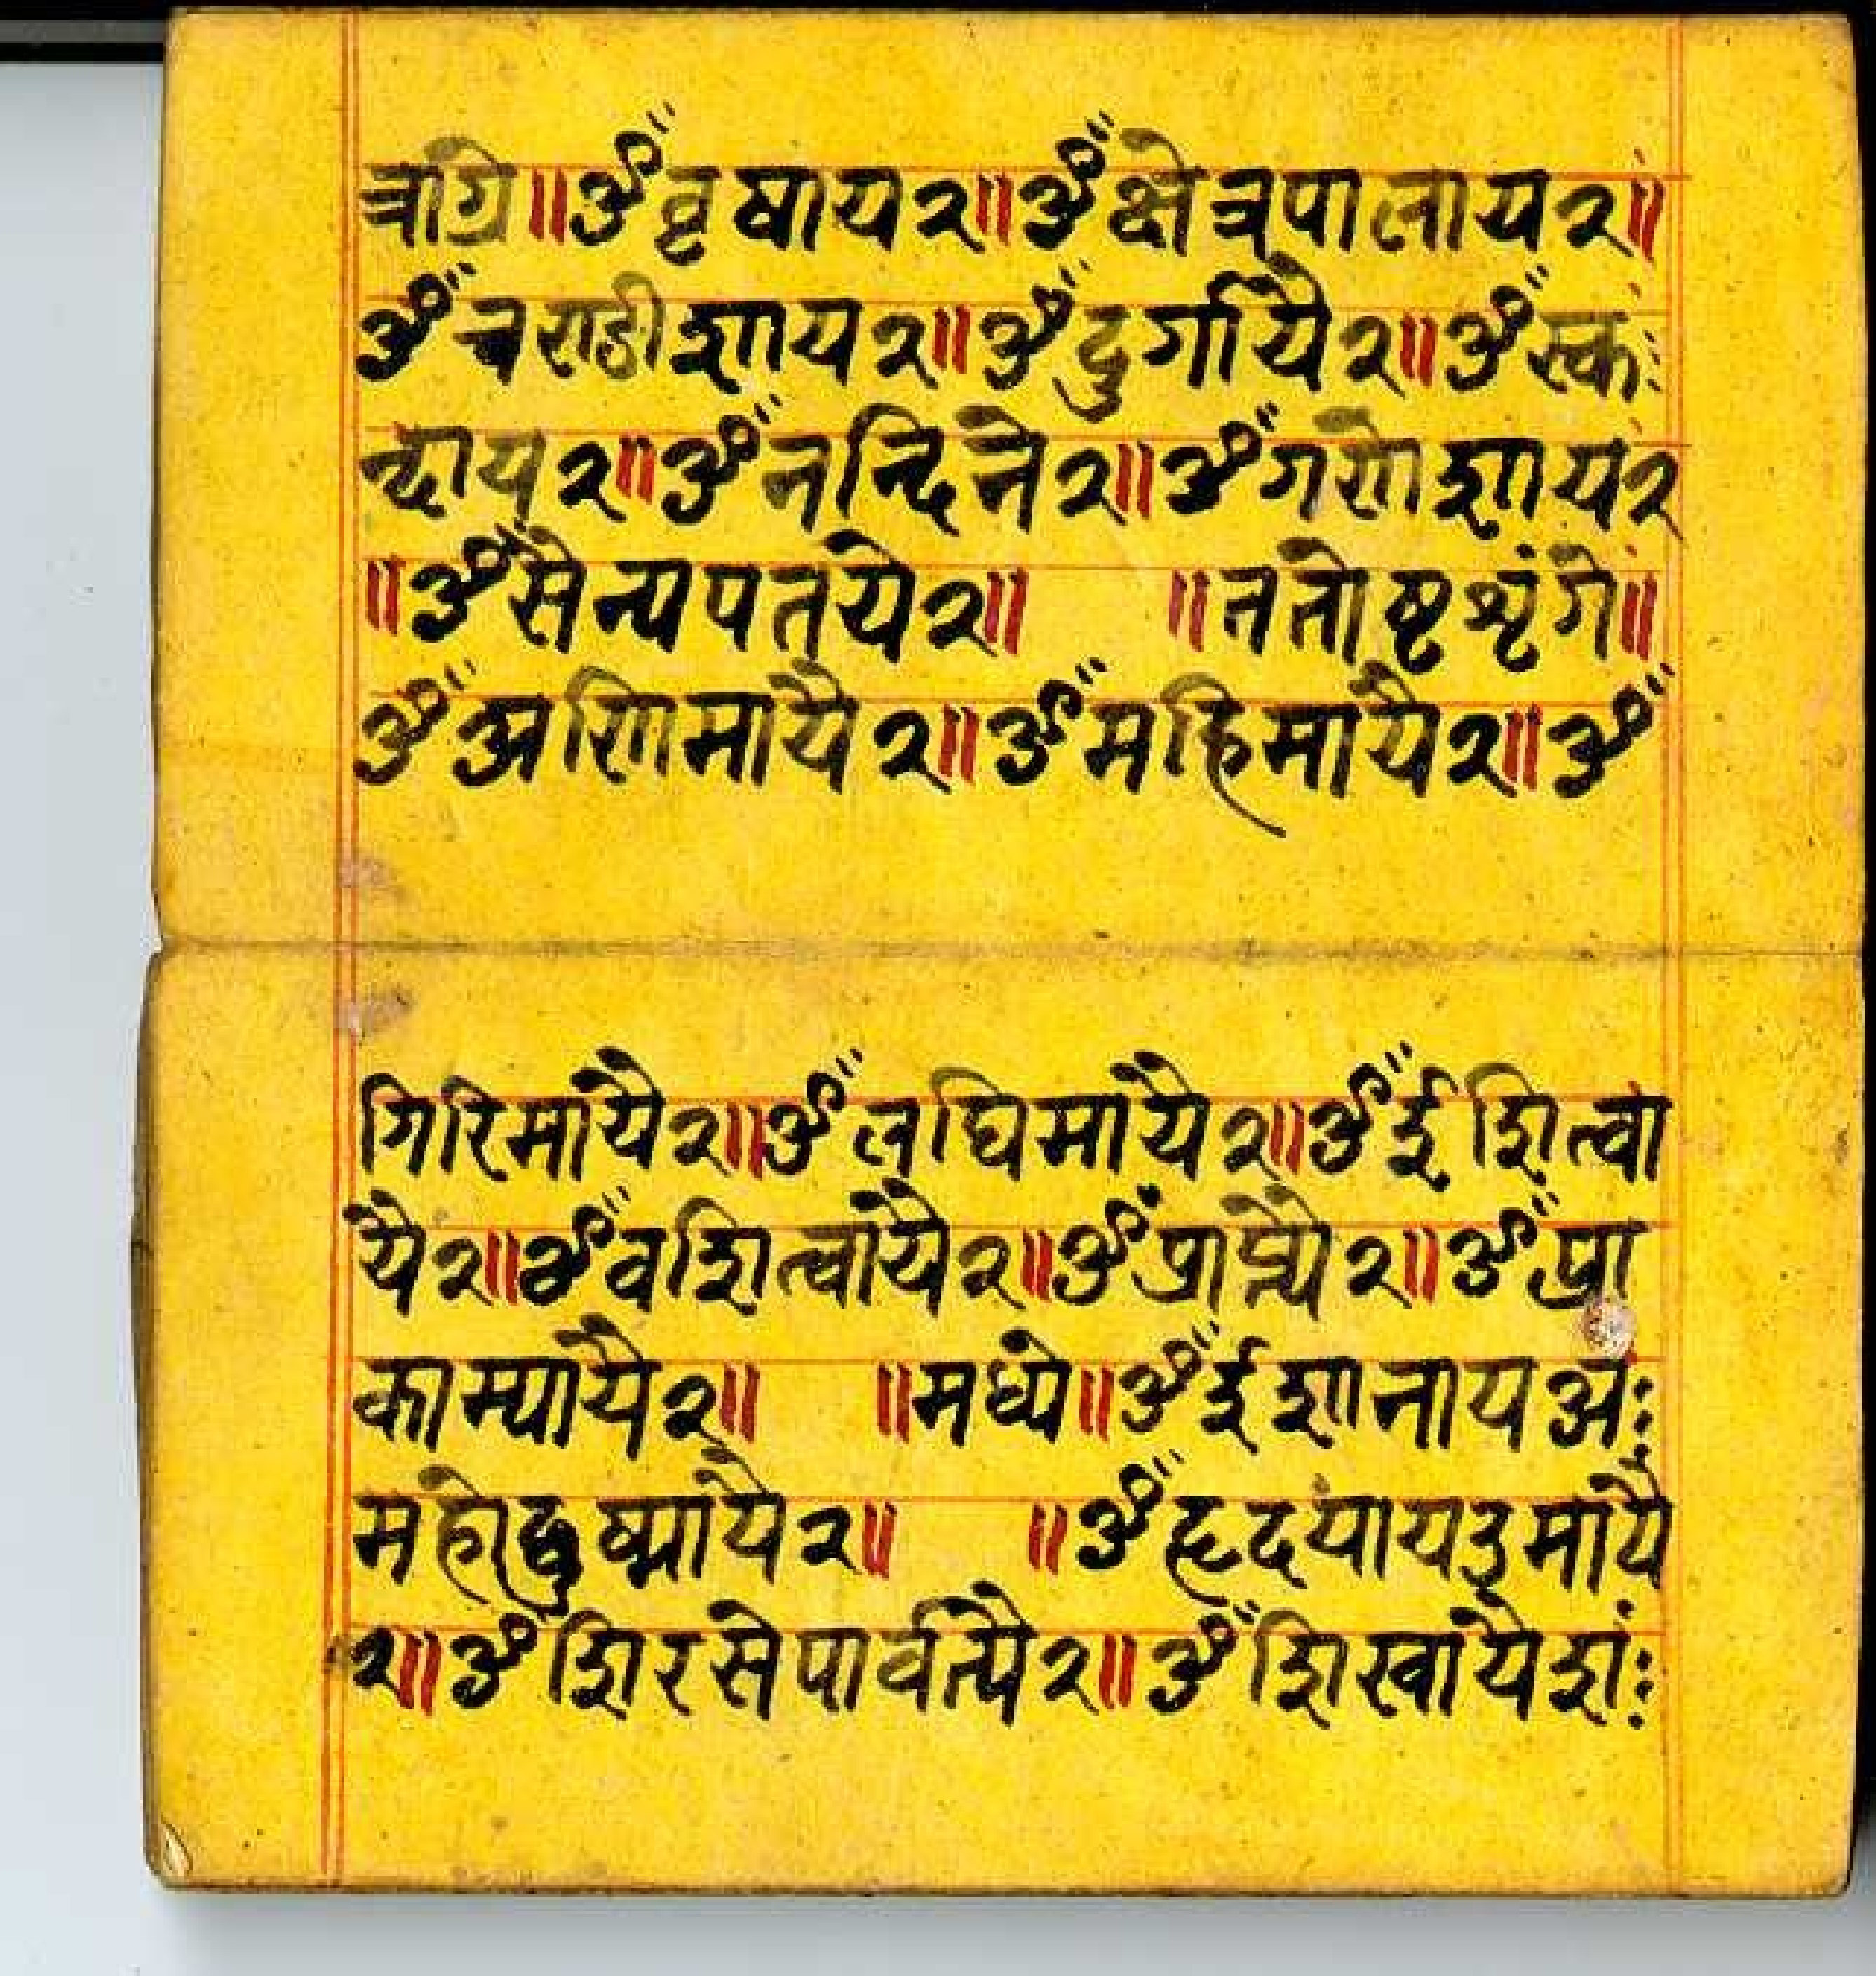 त्राग्रे॥ॐवृषाय२॥ॐक्षेत्रपालाय२॥
ॐचण्डीशाय२॥ॐदुर्गायै२॥ॐस्क
न्दाय२॥ॐनन्दिने२॥ॐगणेशाय२
॥ॐसैन्यपतये२॥ ॥ततोष्टशृंगे॥
ॐअणिमायै२॥ॐमहिमायै२॥ॐ
गिरिमायै२॥ॐलघिमायै२॥ॐईशित्वा
यै२॥ॐवशित्वायै२॥ॐप्राप्त्यै२॥ॐप्रा
काम्यायै२॥ ॥मध्ये॥ॐईशानायअः
महोदुष्मायै२॥ ॥ॐहृदयायउमायै
२॥ॐशिरसेपार्वत्यै२॥ॐशिखायैशंः